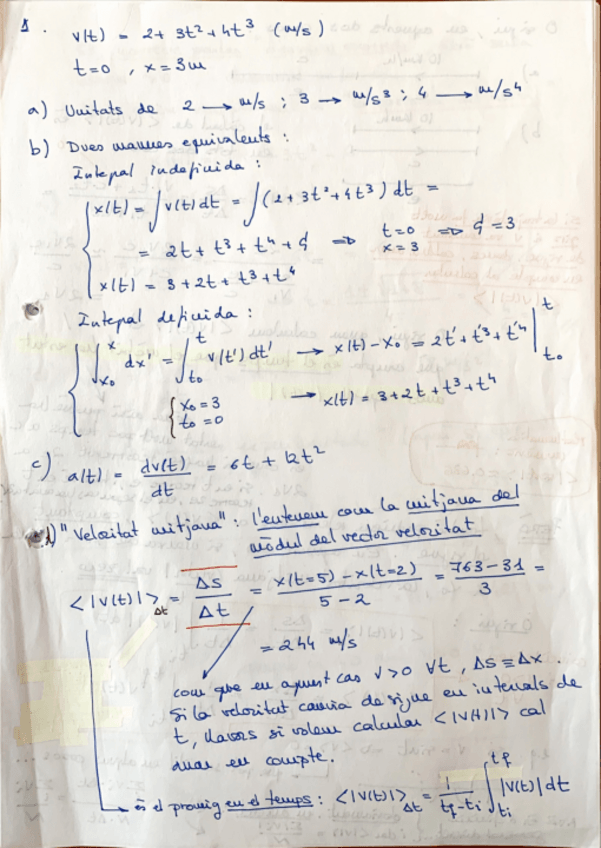 1. v(t) = 2 + 3t² + 4t³ (m/s)
t=0 , x=3m
a) Unitats de 2 → m/s ; 3 → m/s³ ; 4 → m/s⁴
b) Dues maneres equivalents :
Integral indefinida :
x(t) = ∫ v(t) dt = ∫ (2 + 3t² + 4t³) dt =
= 2t + t³ + t⁴ + C ⇒ t=0 x=3 ⇒ C = 3
x(t) = 3 + 2t + t³ + t⁴
Integral definida :
∫_{x₀}^{x} dx' = ∫_{t₀}^{t} v(t') dt' → x(t) - x₀ = 2t' + t'³ + t'⁴ |_{t₀}^{t}
{ x₀ = 3 t₀ = 0 → x(t) = 3 + 2t + t³ + t⁴
c) a(t) = dv(t)/dt = 6t + 12t²
d) "Velocitat mitjana" : l'entenem com la mitjana del
mòdul del vector velocitat
<|v(t)|>_Δt = Δs/Δt = x(t=5) - x(t=2) / 5-2 = 763-31 / 3 =
= 244 m/s
com que en aquest cas v>0 ∀t , Δs ≡ Δx .
Si la velocitat canvia de signe en intervals de
t, llavors si volem calcular <|v(t)|> cal
anar en compte.
és el promig en el temps : <|v(t)|>_Δt = 1/(t_f - t_i) ∫_{t_i}^{t_f} |v(t)| dt